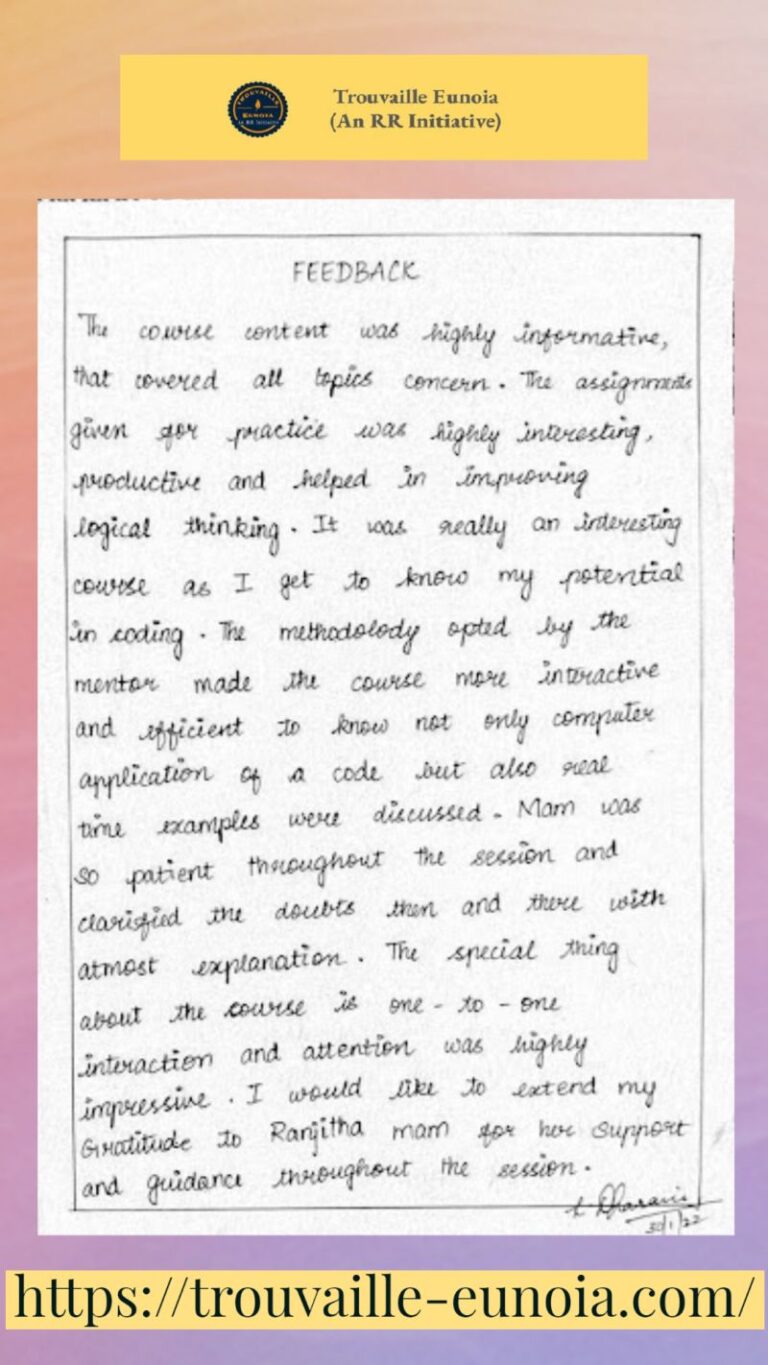 TROUVAILLE
EUNOIA
An RR Initiative
Trouvaille Eunoia
(An RR Initiative)
FEEDBACK
The course content was highly informative,
that covered all topics concern. The assignments
given for practice was highly interesting,
productive and helped in improving
logical thinking. It was really an interesting
course as I get to know my potential
in coding. The methodolody opted by the
mentor made the course more interactive
and efficient to know not only computer
application of a code but also real
time examples were discussed. Mam was
so patient throughout the session and
clarified the doubts then and there with
atmost explanation. The special thing
about the course is one-to-one
interaction and attention was highly
impressive. I would like to extend my
Gratitude to Ranjitha mam for her support
and guidance throughout the session.
30/1/22
https://trouvaille-eunoia.com/